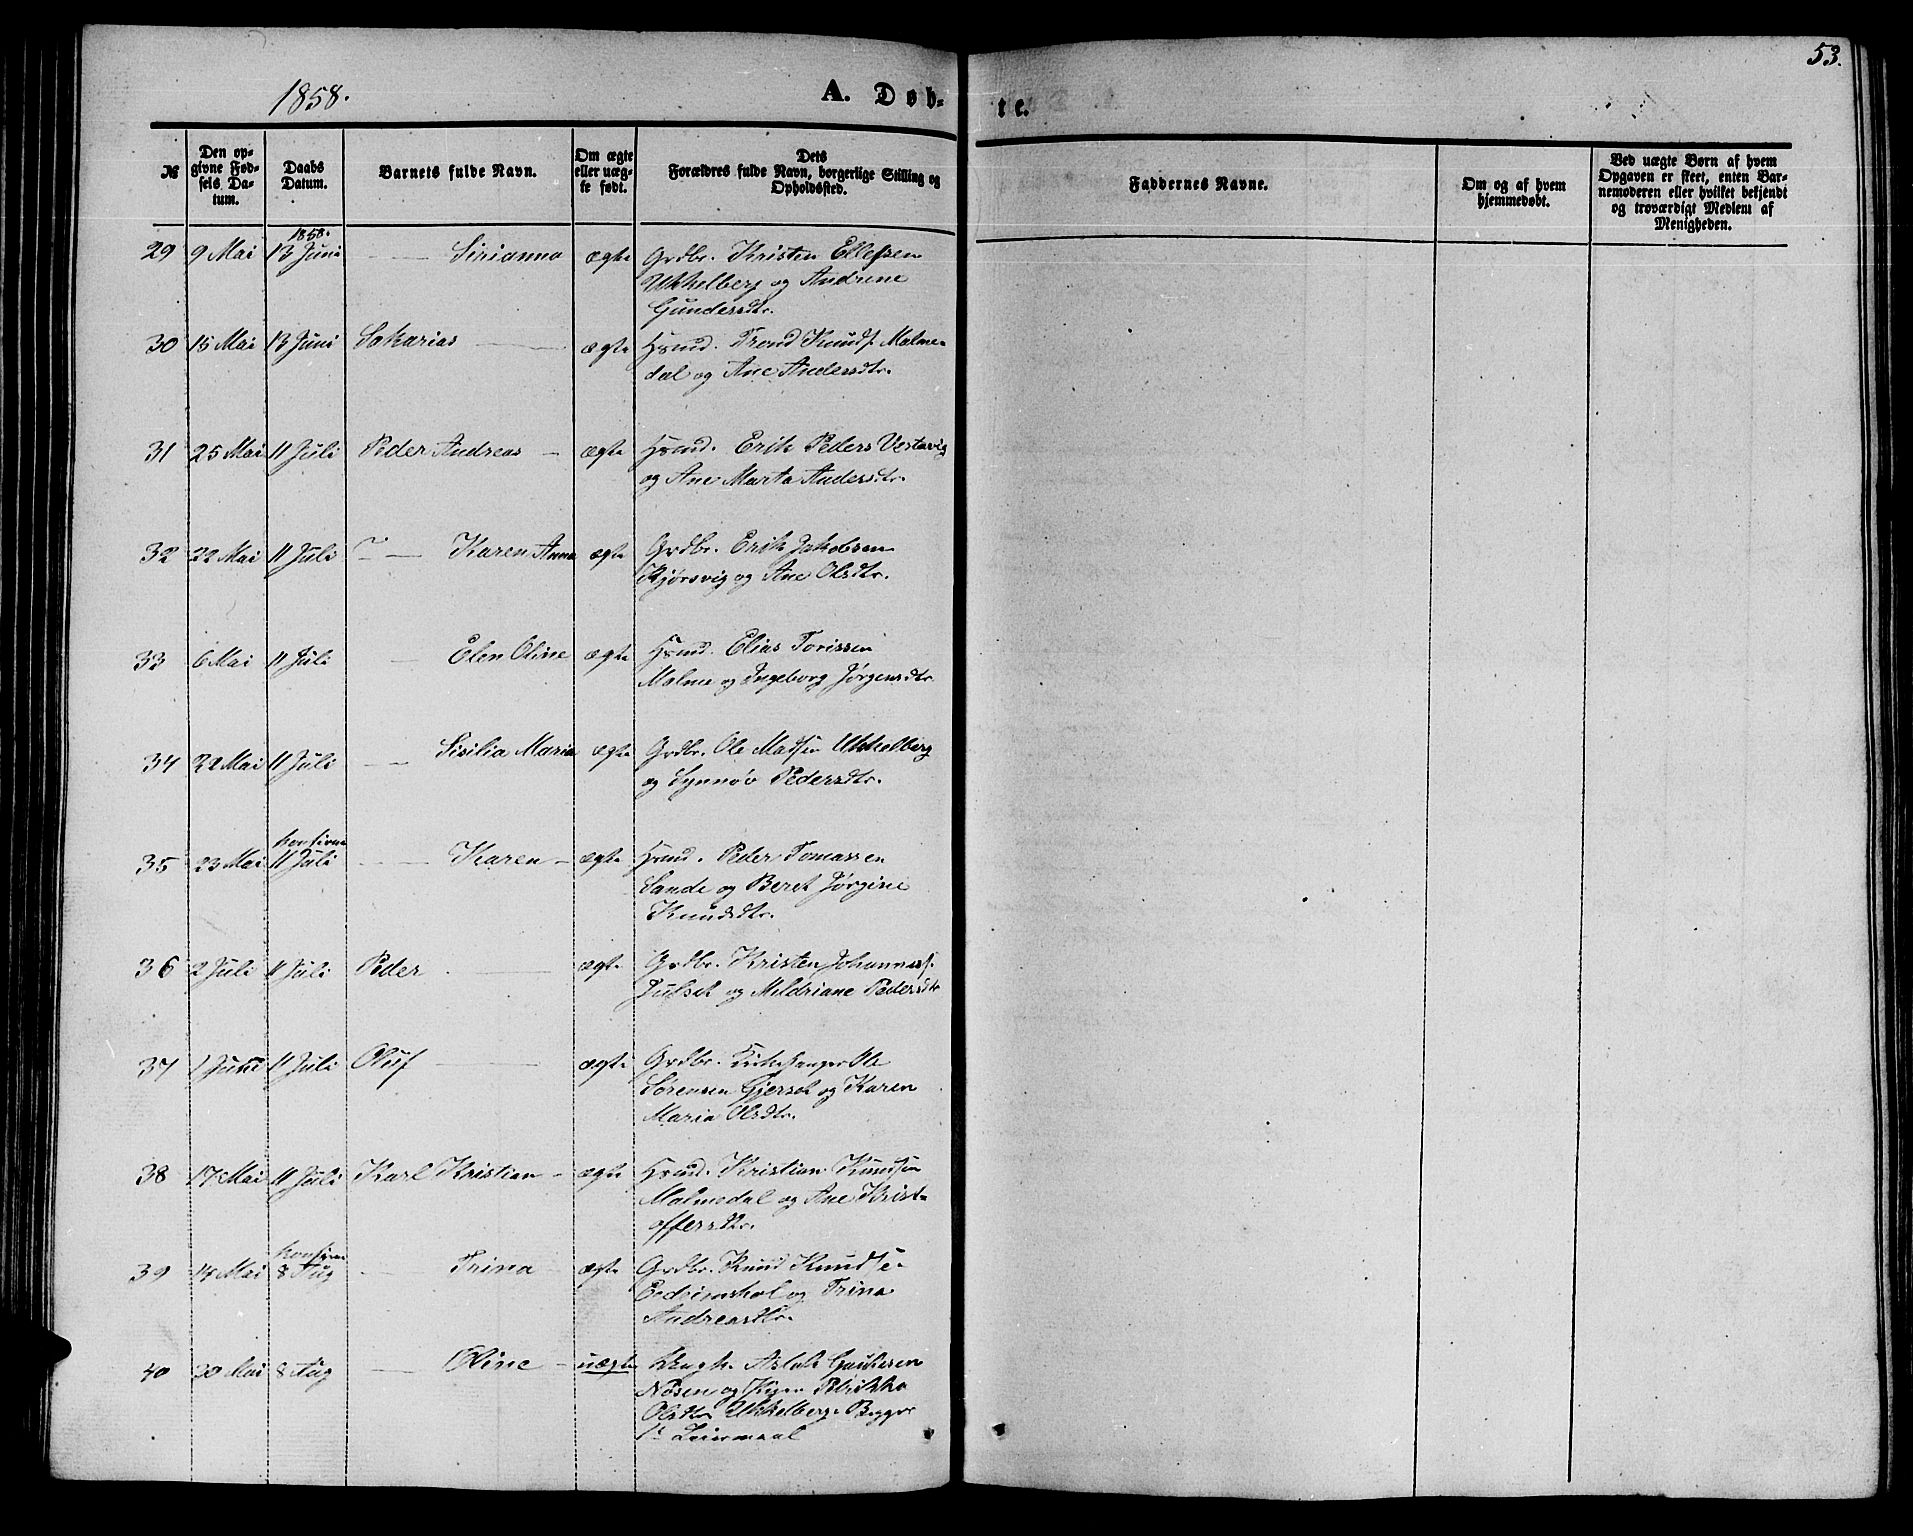 53.
1858.
A. Døb-
te.
№
Den op-
givne Fød-
sels Da-
tum.
Daabs
Datum.
Barnets fulde Navn.
Om ægte
eller uæg-
te født.
Dets
Forældres fulde Navn, borgerlige Stilling og
Opholdssted.
Faddernes Navne.
Om og af hvem
hjemmedøbt.
Ved uægte Børn af hvem
Opgaven er skeet, enten Bar-
nemoderen eller hvilket bekjendt
og troværdigt Medlem af
Menigheden.
1858.
29 9 Mai 13 Juni Sirianna ægte Grdbr. Kristen Ellefsen
Ukkelberg og Andrine
Gundersdtr.
30 15 Mai 13 Juni Sakarias ægte Hsmd. Trond Knuds. Malme-
dal og Ane Andersdtr.
31 25 Mai 11 Juli Peder Andreas ægte Hsmd. Erik Peders Vestavig
og Ane Marta Andersdtr.
32 22 Mai 11 Juli Karen Anna ægte Grdbr. Erik Jakobsen
Kjørsvig og Ane Olsdtr.
33 6 Mai 11 Juli Elen Oline ægte Hsmd. Elias Torissen
Malme og Ingeborg Jørgensdtr.
34 22 Mai 11 Juli Sisilia Maria ægte Grdbr. Ole Madsen Ukkelberg
og Synnøv Pedersdtr.
35 23 Mai 11 Juli Karen ægte Hsmd. Peder Tomassen
Sande og Beret Jørgine
Knudsdtr.
36 2 Juli 11 Juli Peder ægte Grdbr. Kristen Johannes.
Julset og Mildriane Pedersdtr
37 1 Juni 11 Juli Oluf ægte Grdbr. Kirkesanger Ole
Sørensen Gjerset og Karen
Maria Olsdtr.
38 17 Mai 11 Juli Karl Kristian ægte Hsmd. Kristian Knudsen
Malmedal og Ane Krist-
offersdtr.
39 14 Mai 8 Aug Trina ægte Grdbr. Knud Knudse-
og Trina
Andreasdtr.
40 30 Mai 8 Aug Oline uægte Ungk. Aslak Gautesen
Nøsen og Pigen Petrikka
Olsdtr Ukkelberg. Begges
1ste Leiermaal